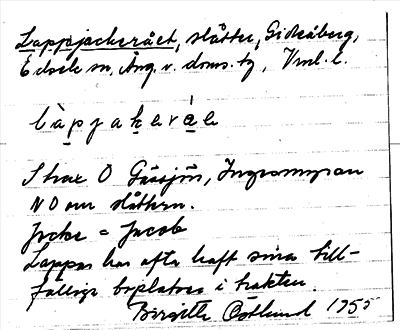 Lappjackerået, slåtter, Gideåberg,
Edsele sn, Ång. v. doms. tg, Vml. l.
làpjakerá̱e
Strax O Gåssjön, Ingromyran
NO om slåttern.
Jocke = Jacob
Lappar har ofta haft sina till-
fälliga boplatser i trakten.
Birgitta Östlund 1955